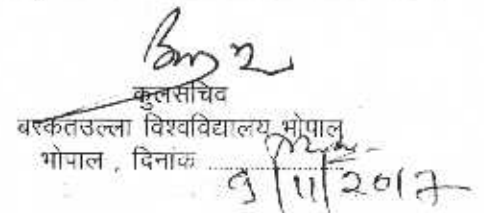 कुलसचिव
बरकतउल्ला विश्वविद्यालय, भोपाल
भोपाल , दिनांक ..............
9/11/2017